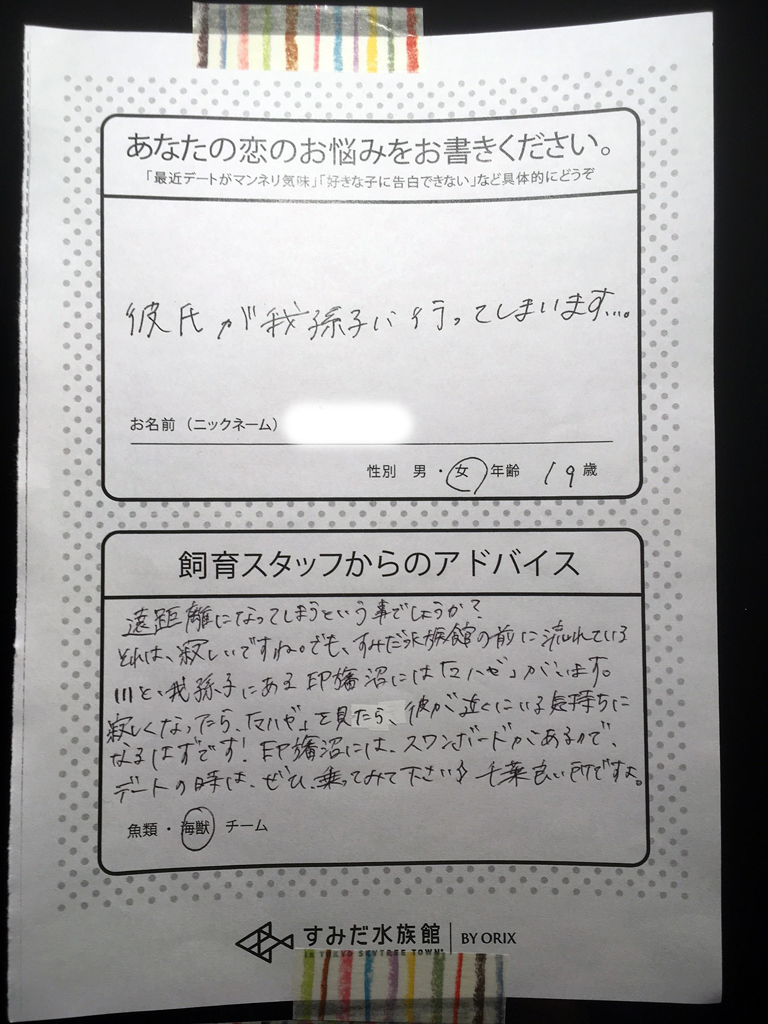 あなたの恋のお悩みをお書きください。
「最近デートがマンネリ気味」「好きな子に告白できない」など具体的にどうぞ
彼氏が我孫子に行ってしまいます...。
お名前（ニックネーム）
性別 男・女 年齢 19歳
飼育スタッフからのアドバイス
遠距離になってしまうという事でしょうか？
それは、寂しいですね。でも、すみだ水族館の前に流れている
川と、我孫子にある印旛沼には「マハゼ」がいます。
寂しくなったら、「マハゼ」を見たら、彼が近くにいる気持ちに
なるはずです！印旛沼には、スワンボードがあるので、
デートの時は、ぜひ、乗ってみて下さい♪ 千葉良い所ですよ。
魚類・海獣 チーム
すみだ水族館 BY ORIX
in TOKYO SKYTREE TOWN®